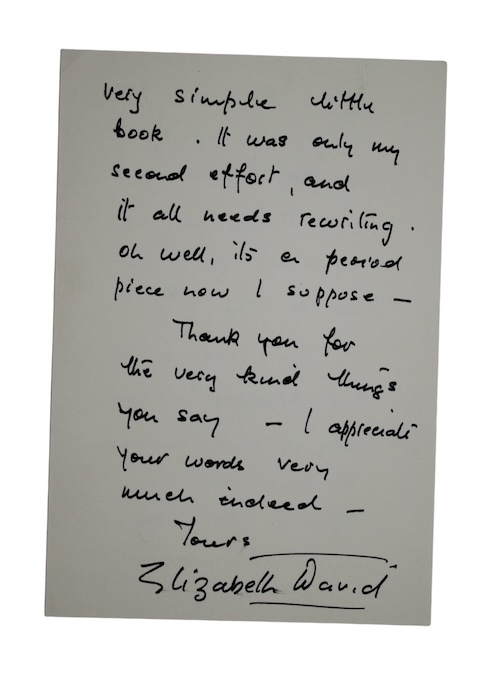 very simple little
book. It was only my
second effort, and
it all needs rewriting.
Oh well, it's a period
piece now I suppose —
Thank you for
the very kind things
you say — I appreciate
your words very
much indeed —
Yours
Elizabeth David